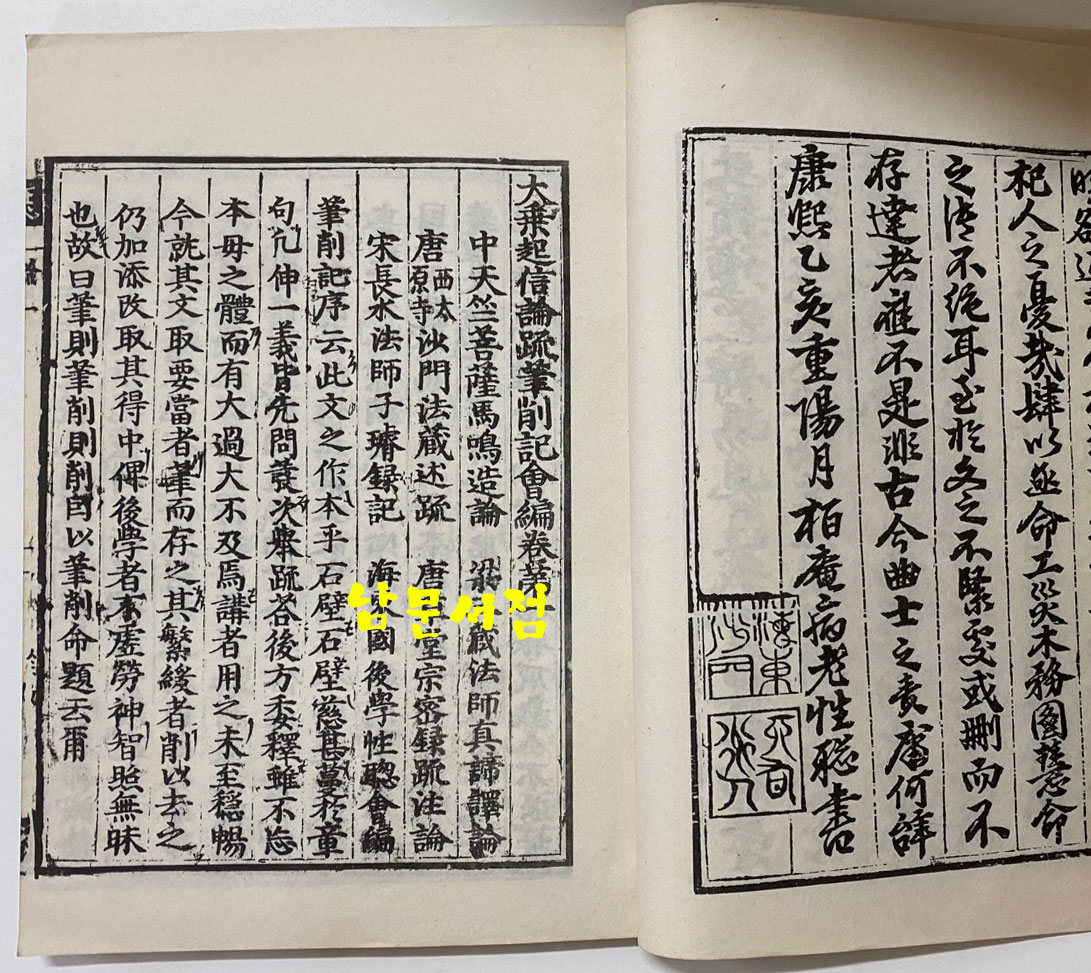 杞人之憂幾肆以亟命工災木務圖慧命
之淸不絶耳至於文之不緊處或刪而不
存達者雖不是非古今曲士之責庸何辭
康熙乙亥重陽月柏庵病老性聡書
大乘起信論䟽筆削記會編卷第一
中天竺菩薩馬鳴造論 梁 藏法師真諦譯論
唐西太原寺沙門法藏述䟽 唐 堂宗密録䟽注論
宋長水法師子璿録記 海東國後學性聰會編
筆削記序云此文之作本乎石壁石壁慈甚蔓於章
句凡伸一義皆先問發次舉䟽荅後方委釋雖不忘
本母之體而有大過大不及焉講者用之未至穏暢
今就其文取要當者筆而存之其繁緩者削以去之
仍加添改取其得中俾後學者不虛勞神智照無昧
也故曰筆則筆削則削因以筆削命題云爾
남문서점